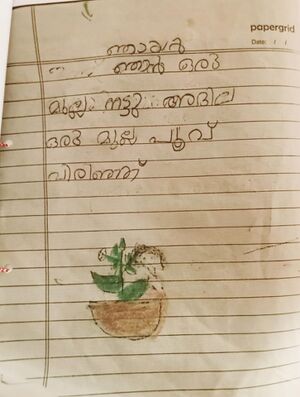 papergrid
Date: / /
ഞായർ
ഞാൻ ഒരു
മുല്ല നട്ടു അതില
ഒരു മുല്ല പൂവ്
വിരിഞ്ഞത്